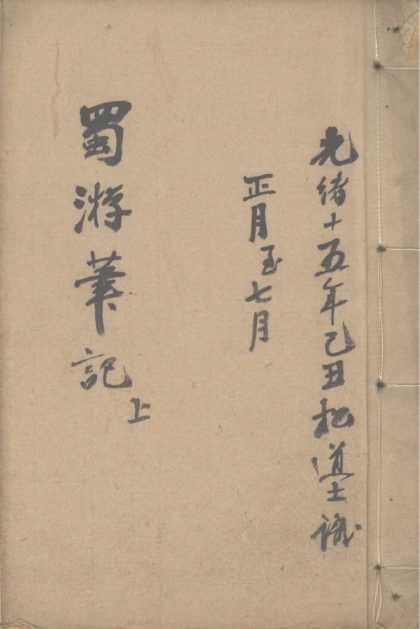 光绪十五年乙丑松道士識
正月至七月
蜀游筆記
上